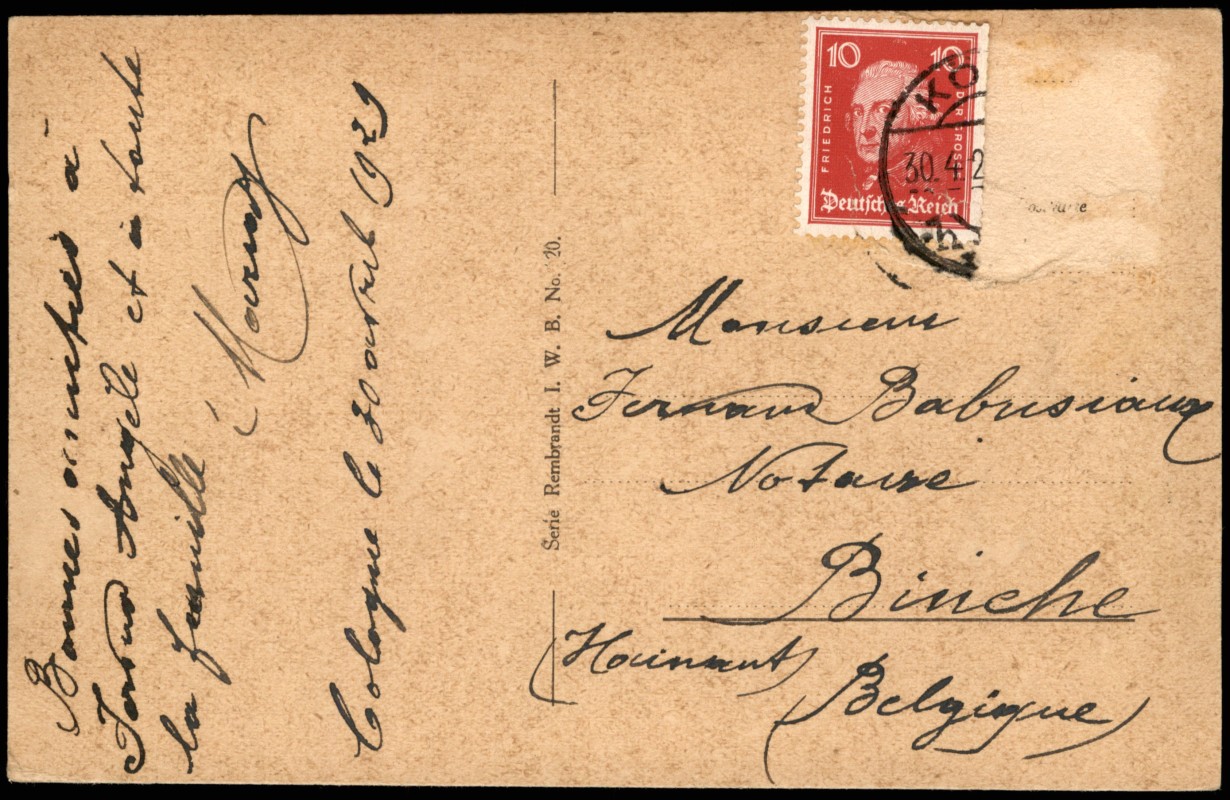 Bonnes amitiés à
Angèle et à toute
la famille
Cologne le 30 avril 1929
Serie Rembrandt I. W. B. No. 20.
10 10
FRIEDRICH
DER GROSSE
Deutsches Reich
KÖ
30.4.2
Monsieur
Fernand Babusiaux
Notaire
Binche
(Hainaut)
(Belgique)